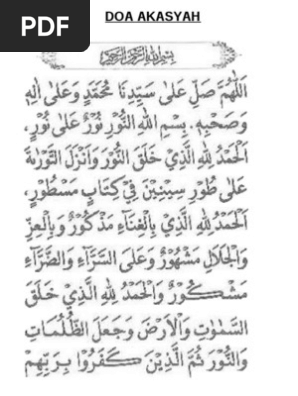 PDF
DOA AKASYAH
بِسْمِ اللهِ الرَّحْمٰنِ الرَّحِيْمِ
اَللّٰهُمَّ صَلِّ عَلٰى سَيِّدِنَا مُحَمَّدٍ وَعَلٰى اٰلِهٖ
وَصَحْبِهٖ. بِسْمِ اللهِ النُّوْرِ نُوْرٌ عَلٰى نُوْرٍ،
اَلْحَمْدُ لِلّٰهِ الَّذِيْ خَلَقَ النُّوْرَ وَاَنْزَلَ التَّوْرٰىةَ
عَلٰى طُوْرِ سِيْنِيْنَ فِيْ كِتَابٍ مَسْطُوْرٍ،
اَلْحَمْدُ لِلّٰهِ الَّذِيْ بِالْغِنَآءِ مَذْكُوْرٌ وَبِالْعِزِّ
وَالْجَلَالِ مَشْهُوْرٌ وَعَلَى السَّرَّآءِ وَالضَّرَّآءِ
مَشْكُوْرٌ وَالْحَمْدُ لِلّٰهِ الَّذِيْ خَلَقَ
السَّمٰوٰتِ وَالْاَرْضَ وَجَعَلَ الظُّلُمَاتِ
وَالنُّوْرَ ثُمَّ الَّذِيْنَ كَفَرُوْا بِرَبِّهِمْ